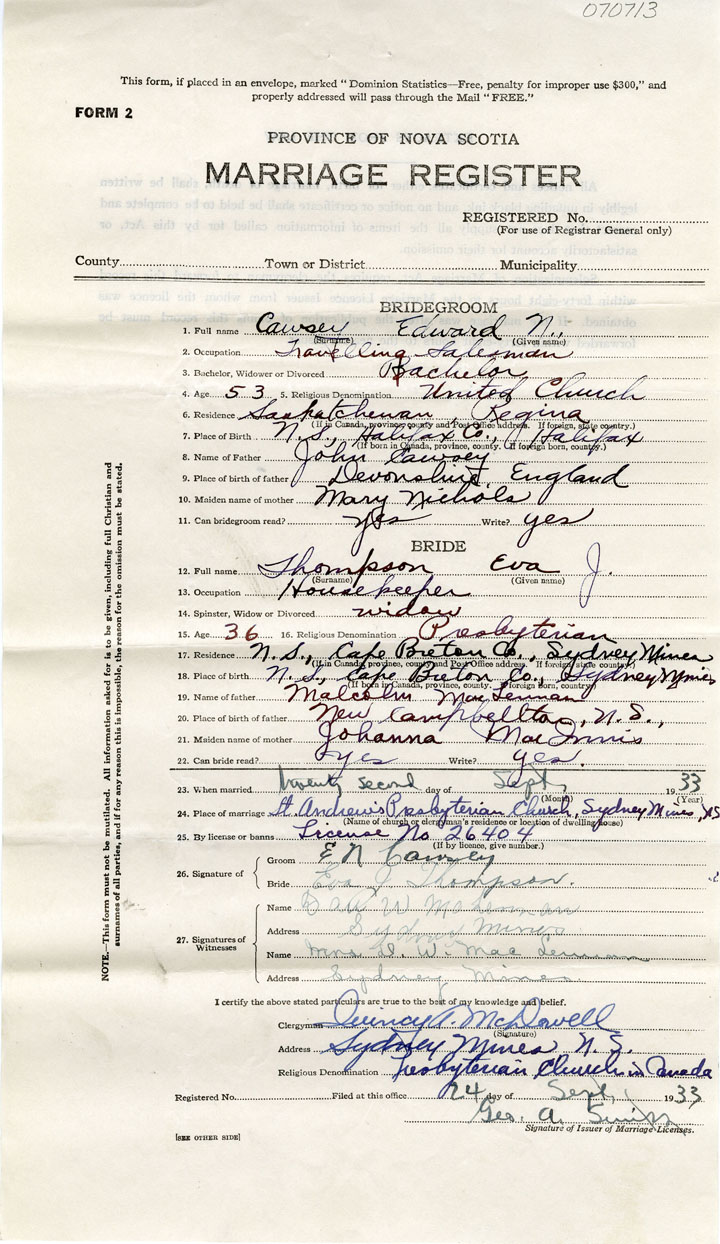 070713
This form, if placed in an envelope, marked "Dominion Statistics—Free, penalty for improper use $300," and
properly addressed will pass through the Mail "FREE."
FORM 2
PROVINCE OF NOVA SCOTIA
MARRIAGE REGISTER
REGISTERED No.
(For use of Registrar General only)
County Town or District Municipality
BRIDEGROOM
1. Full name Cawsey Edward N.,
(Surname) (Given name)
2. Occupation Travelling Salesman
3. Bachelor, Widower or Divorced Bachelor
4. Age 53 5. Religious Denomination United Church
6. Residence Saskatchewan, Regina
(If in Canada, province, county and Post Office address. If foreign, state country.)
7. Place of Birth N.S., Halifax Co., Halifax
(If born in Canada, province, county. If foreign born, country.)
8. Name of Father John Cawsey
9. Place of birth of father Devonshire, England
10. Maiden name of mother Mary Nichols
11. Can bridegroom read? yes Write? yes
BRIDE
12. Full name Thompson Eva J.
(Surname) (Given name)
13. Occupation Housekeeper
14. Spinster, Widow or Divorced widow
15. Age 36 16. Religious Denomination Presbyterian
17. Residence N.S., Cape Breton Co., Sydney Mines
(If in Canada, province, county and Post Office address. If foreign state country.)
18. Place of birth N.S., Cape Breton Co., Sydney Mines
(If born in Canada, province, county. If foreign born, country)
19. Name of father Malcolm MacLennan
20. Place of birth of father New Campbellton, N.S.,
21. Maiden name of mother Johanna MacInnis
22. Can bride read? yes Write? yes.
23. When married twenty second day of Sept. 1933
(Month) (Year)
24. Place of marriage St Andrew's Presbyterian Church, Sydney Mines, NS
(Name of church or clergyman's residence or location of dwelling house)
25. By license or banns License No 26404
(If by licence, give number.)
26. Signature of
Groom E N Cawsey
Bride Eva J Thompson.
27. Signatures of Witnesses
Name W
Address Sydney Mines
Name D. W. MacLennan
Address Sydney Mines.
I certify the above stated particulars are true to the best of my knowledge and belief.
Clergyman Quincy A. McDowell
(Signature)
Address Sydney Mines N.S.
Religious Denomination Presbyterian Church in Canada
Registered No. Filed at this office 24 day of Sept. 1933
Geo. A.
Signature of Issuer of Marriage Licenses.
[SEE OTHER SIDE]
NOTE.—This form must not be mutilated. All information asked for is to be given, including full Christian and
surnames of all parties, and if for any reason this is impossible, the reason for the omission must be stated.